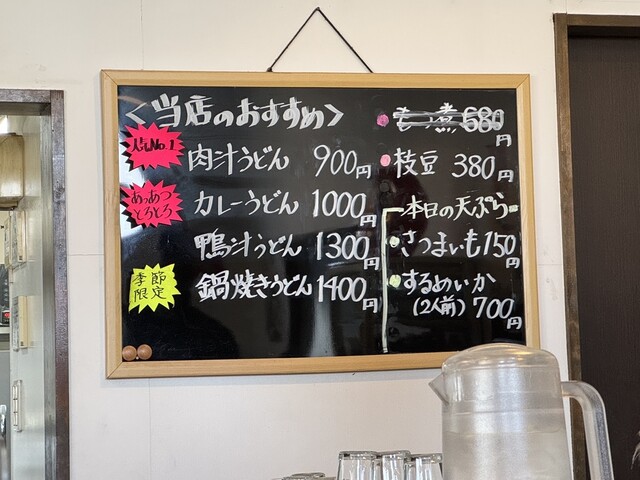 ＜当店のおすすめ＞
人気No.1
肉汁うどん 900円
あつあつ
とろとろ
カレーうどん 1000円
鴨汁うどん 1300円
季節
限定
鍋焼きうどん 1400円
もつ煮 680円
枝豆 380円
本日の天ぷら
さつまいも 150円
するめいか
(2人前) 700円